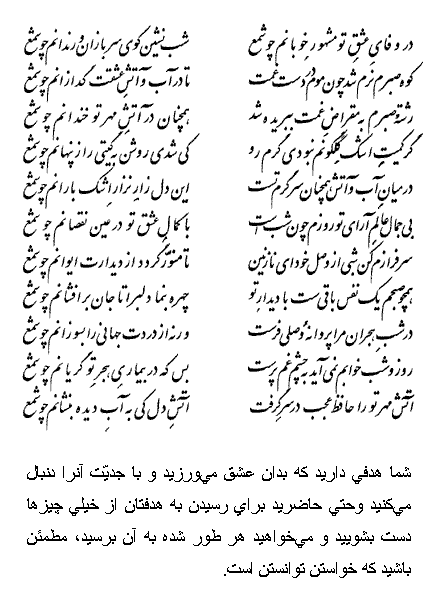 در وفای عشق تو مشهور خوبانم چو شمع شب نشین کوی سربازان و رندانم چو شمع
کوه صبرم نرم شد چون موم در دست غمت تا در آب و آتش عشقت گدازانم چو شمع
رشتهٔ صبرم به مقراض غمت ببریده شد همچنان در آتش مهر تو خندانم چو شمع
گر کمیت اشک گلگونم نبودی گرم رو کی شدی روشن به گیتی راز پنهانم چو شمع
در میان آب و آتش همچنان سرگرم تست این دل زار نزار اشک بارانم چو شمع
بی جمال عالم آرای تو روزم چون شب است با کمال عشق تو در عین نقصانم چو شمع
سرفرازم کن شبی از وصل خود ای نازنین تا منور گردد از دیدارت ایوانم چو شمع
همچو صبحم یک نفس باقی ست با دیدار تو چهره بنما دلبرا تا جان برافشانم چو شمع
در شب هجران مرا پروانهٔ وصلی فرست ورنه از دردت جهانی را بسوزانم چو شمع
روز و شب خوابم نمی آید به چشم غم پرست بس که در بیماری هجر تو گریانم چو شمع
آتش مهر تو را حافظ عجب در سر گرفت آتش دل کی به آب دیده بنشانم چو شمع
شما هدفي داريد که بدان عشق مي‌ورزيد و با جديّت آنرا دنبال
مي‌کنيد وحتي حاضريد براي رسيدن به هدفتان از خيلي چيزها
دست بشوييد و مي‌خواهيد هر طور شده به آن برسيد، مطمئن
باشيد که خواستن توانستن است.